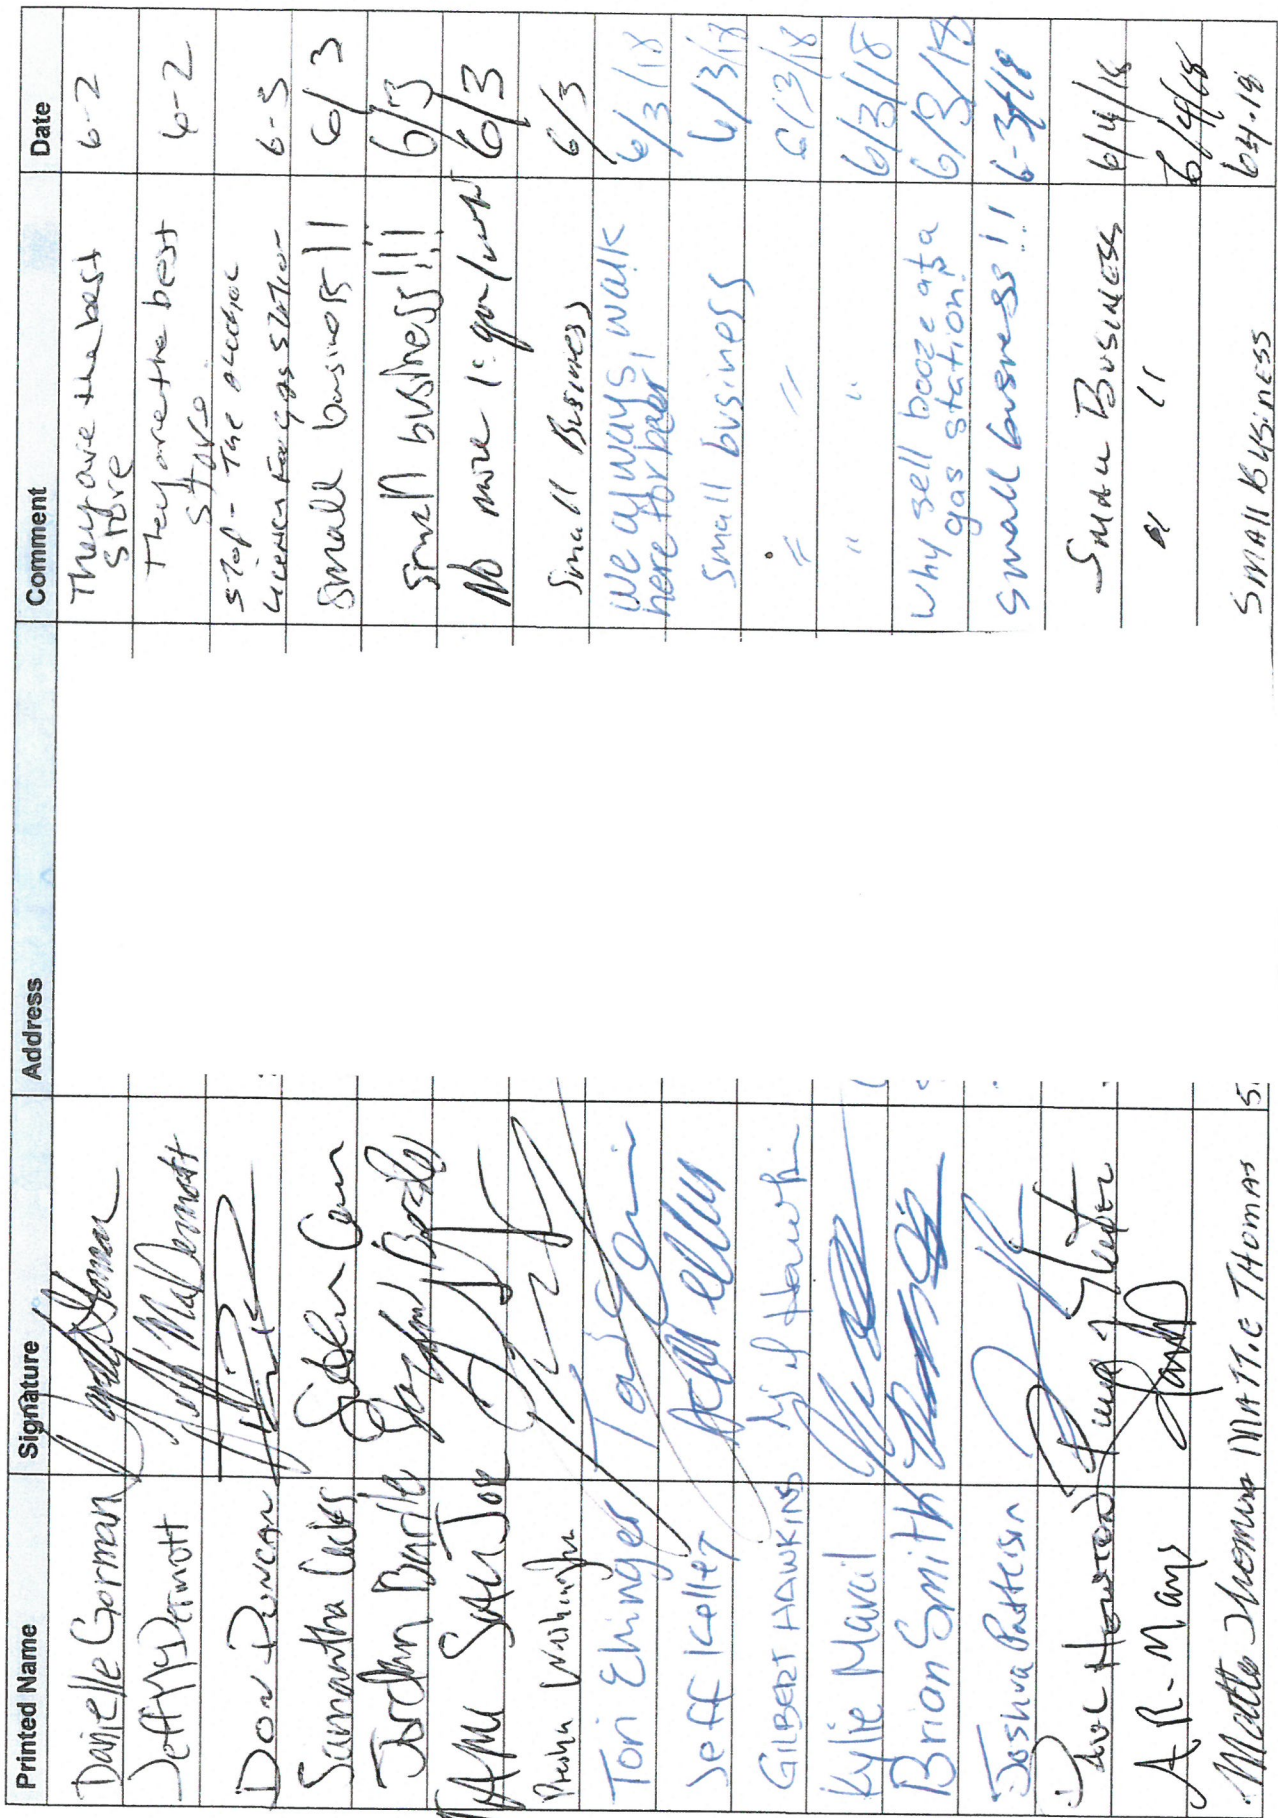 Printed Name Signature Address Comment Date
Danielle Gorman They are the best 6-2
Store
Jeff McDermott They are the best 6-2
Store
Don Duncan Stop - The 6-3
for gas station
Samantha Small business!! 6/3
Jordan Small business!!! 6/3
No more 6/3
Small Business 6/3
Tori Ehinger We always walk 6/3/18
here for beer
Jeff Keller Small business 6/3/18
GILBERT HAWKINS " " 6/3/18
Kylie " " 6/3/18
Brian Smith Why sell booze at a 6/3/18
gas station?
Joshua Patterson Small business!!! 6-3-18
Small Business 6/4/18
A.R. Mays " " 6/4/18
Matte Thomas MATT.E THOMAS 5 SMAll BUSiNESS 6-4-18